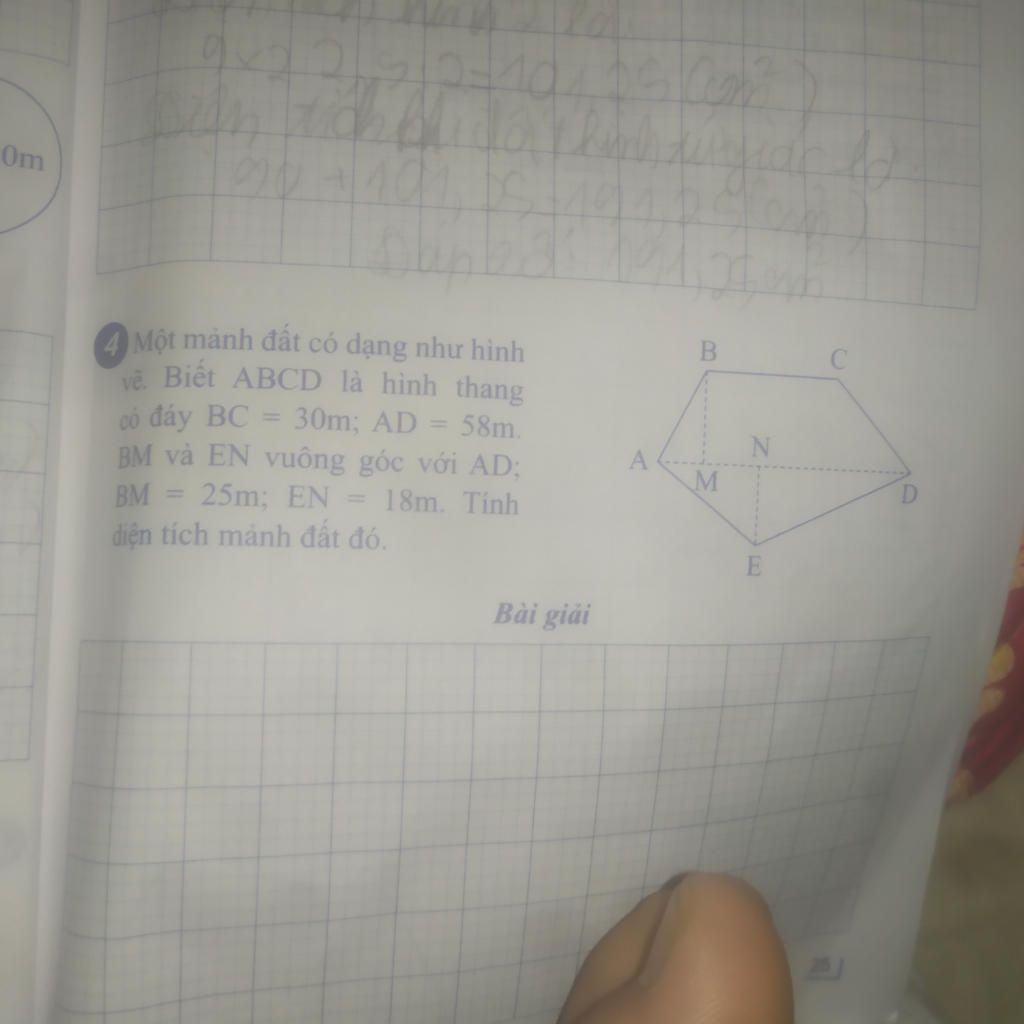 0m
9 x 22,5 : 2 = 101,25 (cm²)
Diện tích
là:
90 + 101,25 = 191,25 (cm²)
Đáp số: 191,25 cm²
4 Một mảnh đất có dạng như hình
vẽ. Biết ABCD là hình thang
có đáy BC = 30m; AD = 58m.
BM và EN vuông góc với AD;
BM = 25m; EN = 18m. Tính
diện tích mảnh đất đó.
B C
A M N D
E
Bài giải
25